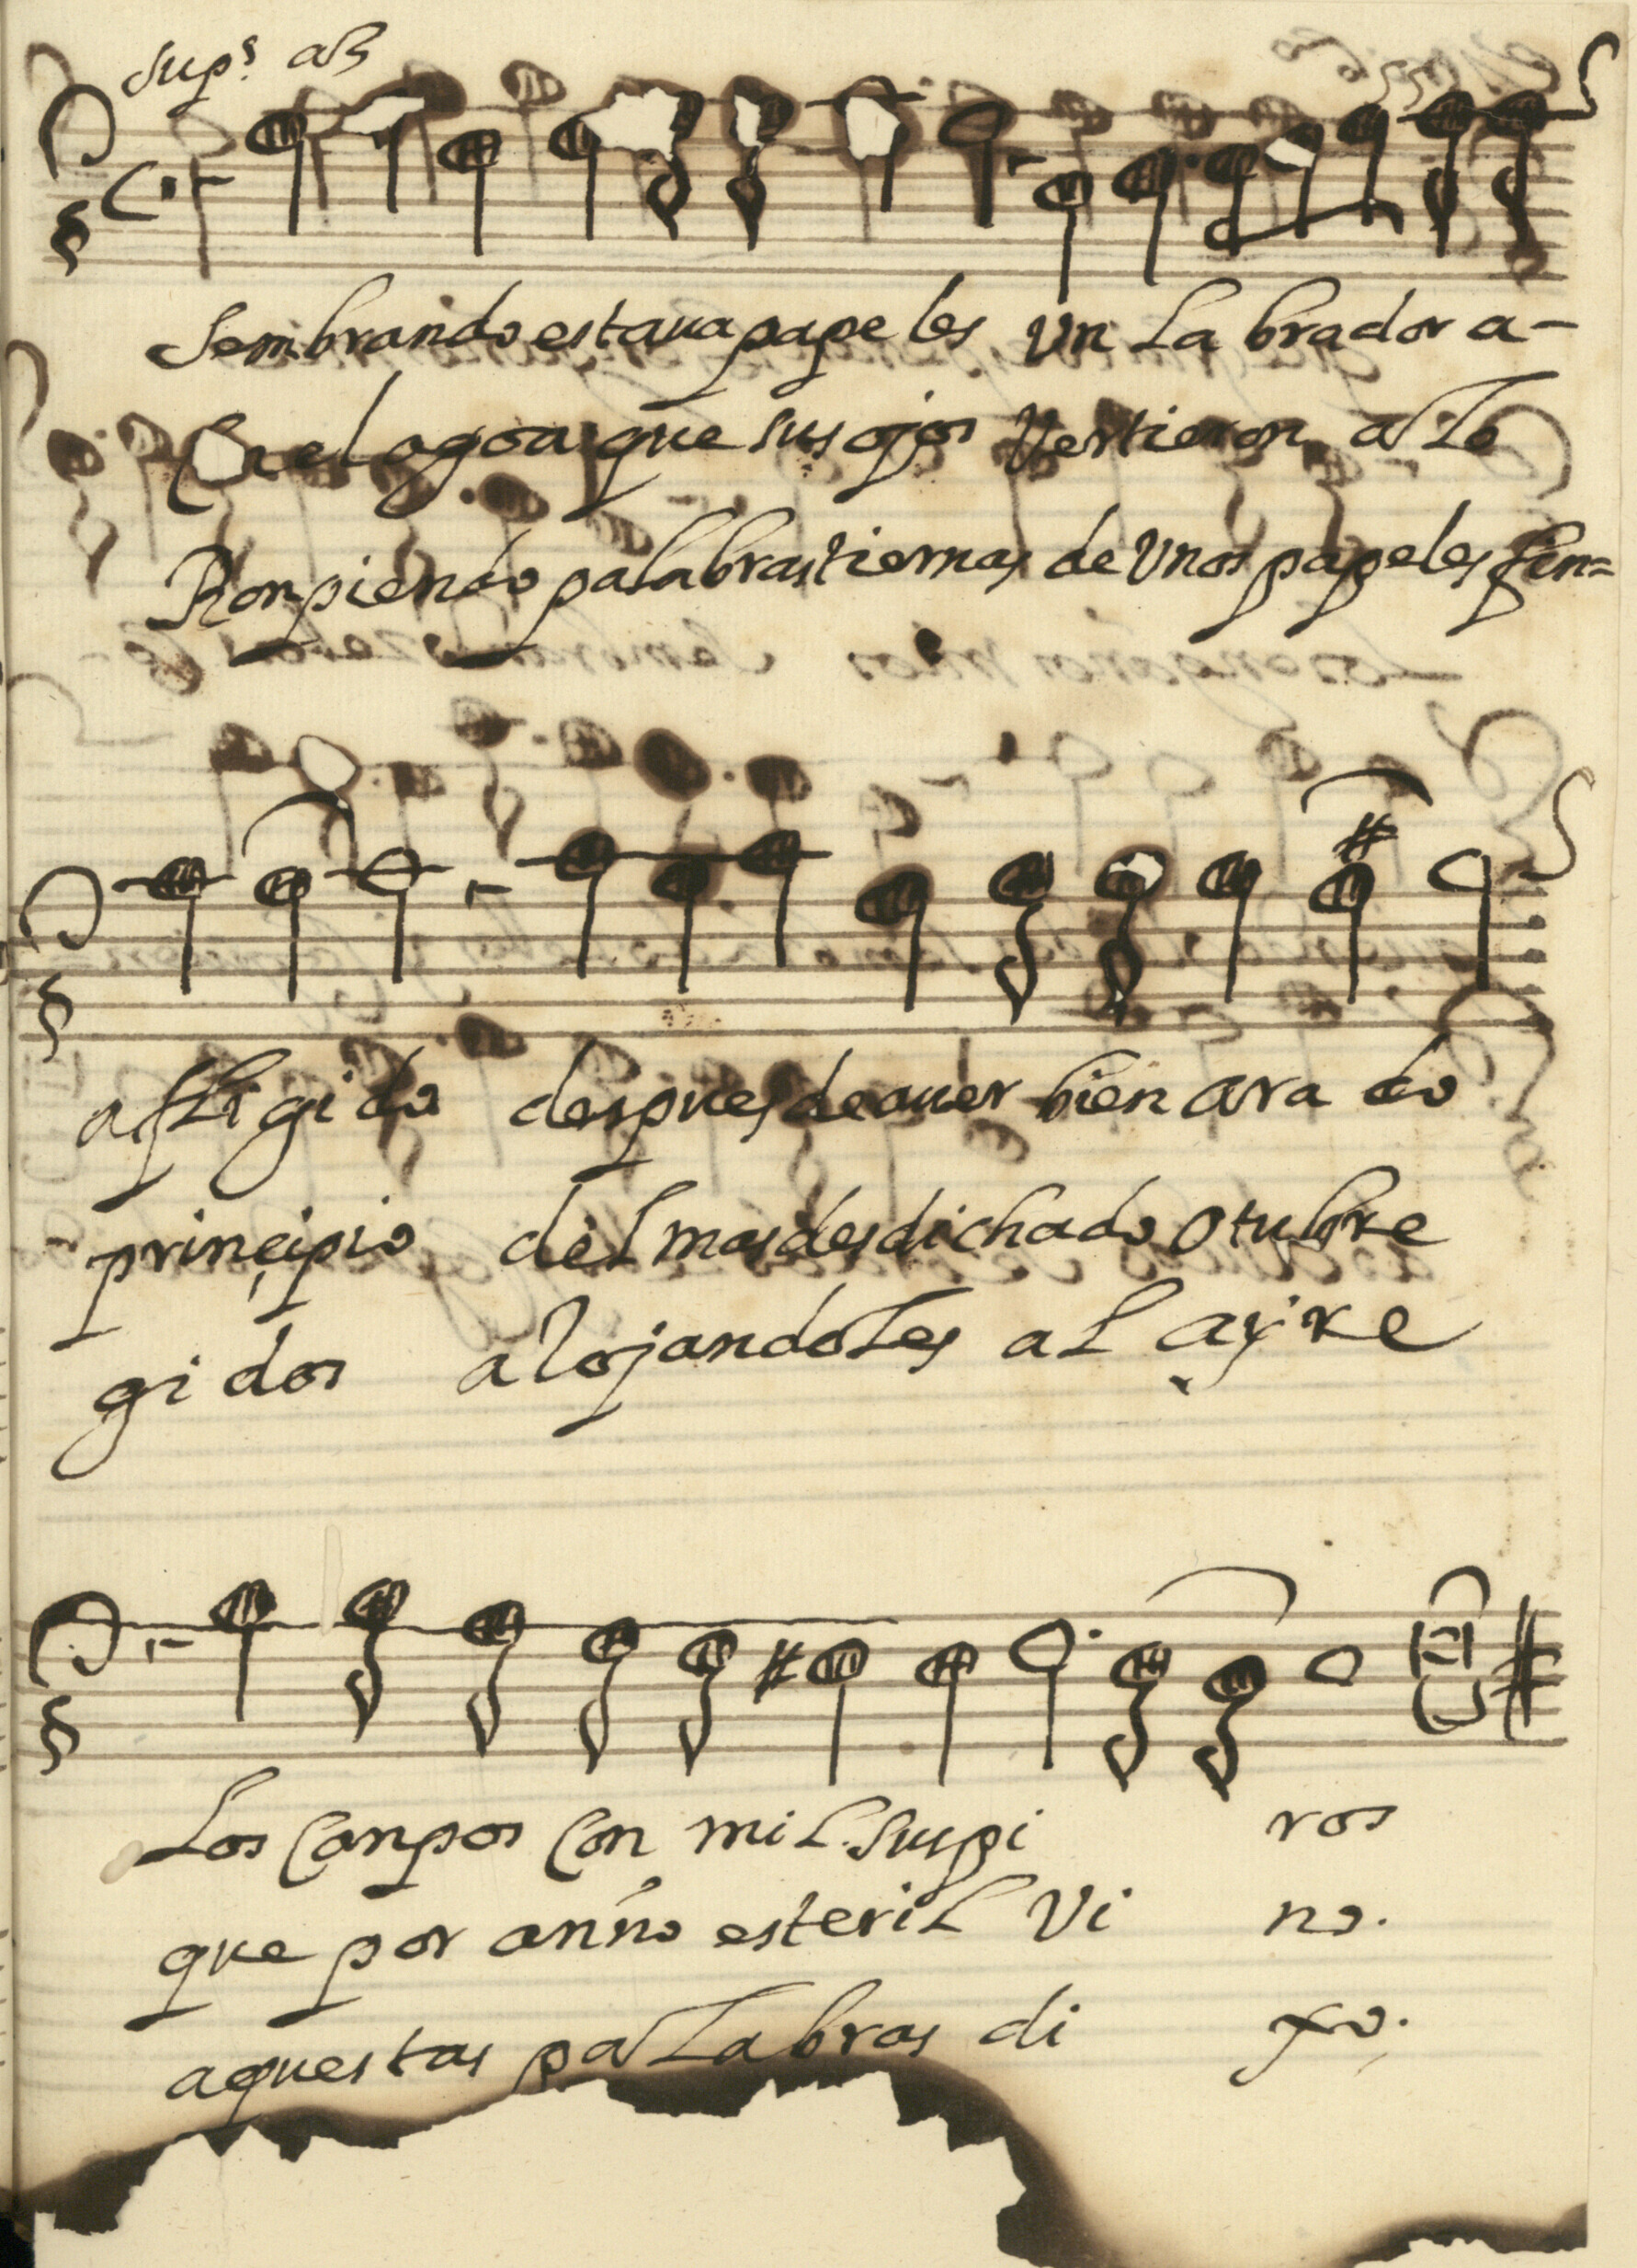 Sup.s a3
Sembrando estaua papeles Vn Labrador a-
Con el agoa que sus ojos Vertieron alLo
Ronpiendo palabras tiernas de Vnos papeles fin=
afLigido despues de auer bien arado
prinçipio deL mas desdichado Otubre
gidos alojandoLes aL ayre
Los Canpos Con miL Suspi ros
que por anño esteriL Vi no.
aquestas palLabras di xo.